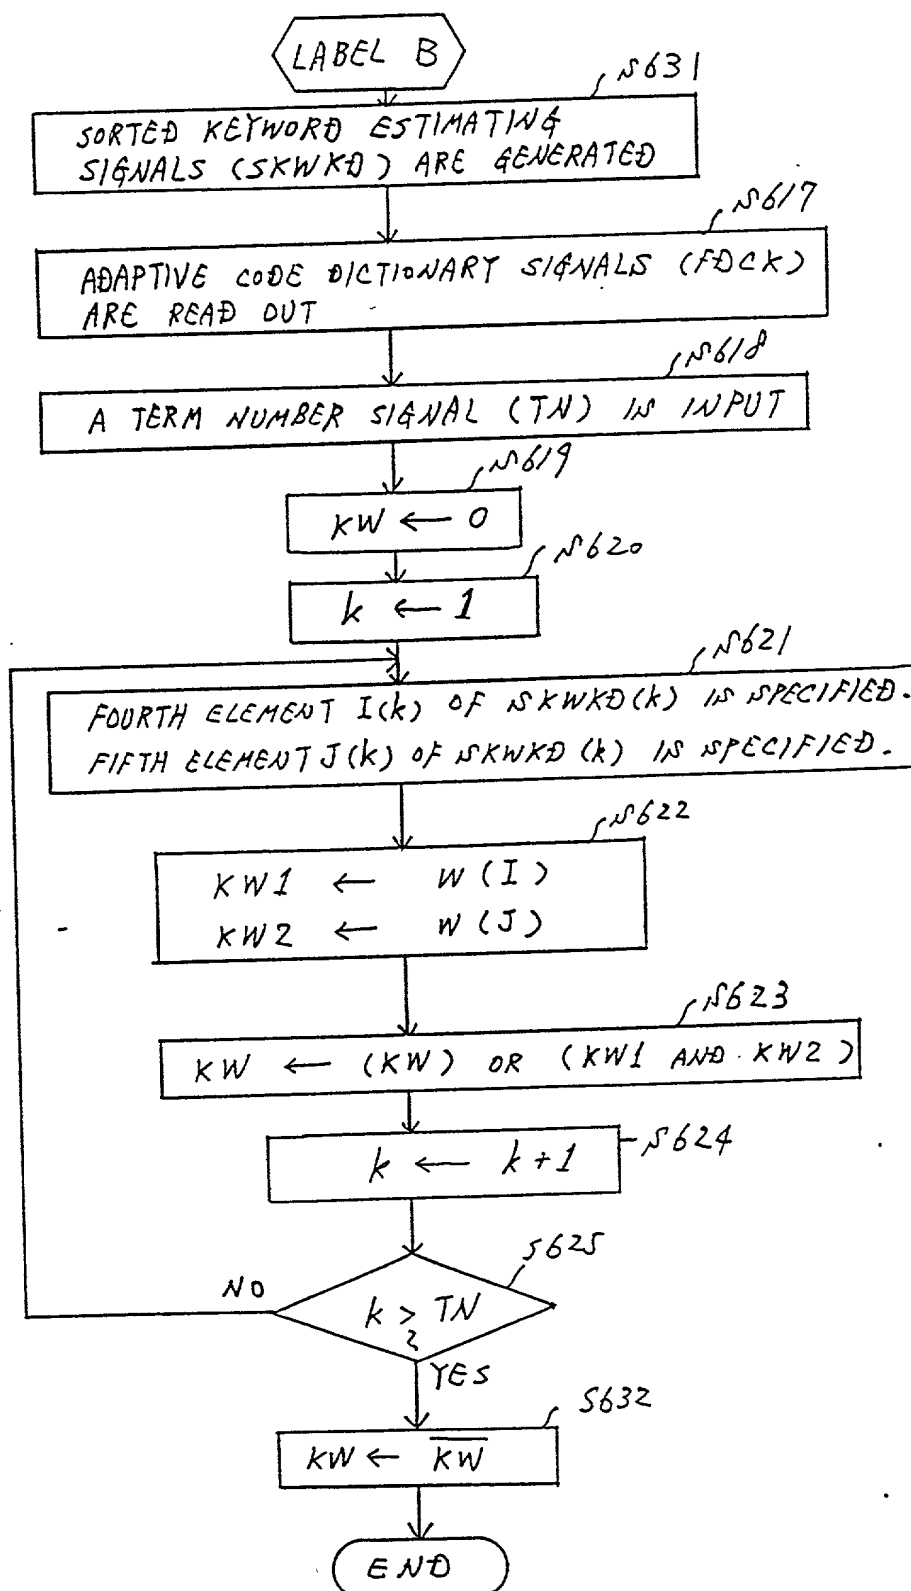 LABEL B
S631
SORTED KEYWORD ESTIMATING
SIGNALS (SKWKD) ARE GENERATED
S617
ADAPTIVE CODE DICTIONARY SIGNALS (FDCK)
ARE READ OUT
S618
A TERM NUMBER SIGNAL (TN) IS INPUT
S619
KW ← 0
S620
k ← 1
S621
FOURTH ELEMENT I(k) OF SKWKD(k) IS SPECIFIED.
FIFTH ELEMENT J(k) OF SKWKD (k) IS SPECIFIED.
S622
KW1 ← W(I)
KW2 ← W(J)
S623
KW ← (KW) OR (KW1 AND KW2)
S624
k ← k+1
S625
NO
k > TN
?
YES
S632
KW ← \overline{KW}
END